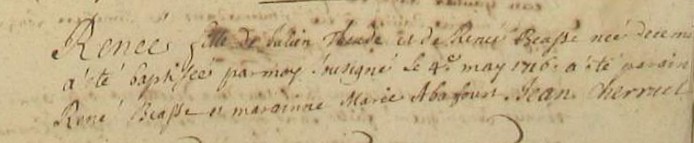 Renée fille de Julien Theude et de René Beassé née de ce m
a été baptisée par moy sousigné le 4e may 1716. a été parain
René Beasse et marainne Marie Abafour. Jean Cherruel